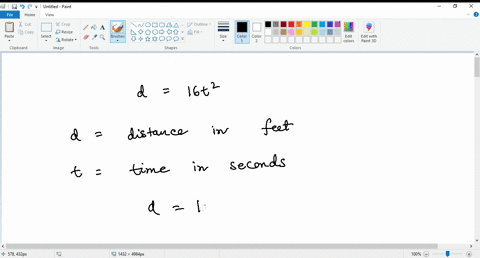 Untitled - Paint
File Home View
Paste Cut Copy Clipboard
Select Crop Resize Rotate Image
Brushes Tools
Shapes Outline Fill
Size Color 1 Color 2 Colors Edit colors Edit with Paint 3D
d = 16t²
d = distance in feet
t = time in seconds
d = 1
578, 432px 1432 × 4984px 100%